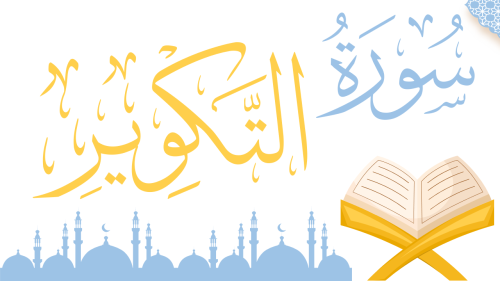 سُورَةُ
التَّكْوِيرِ